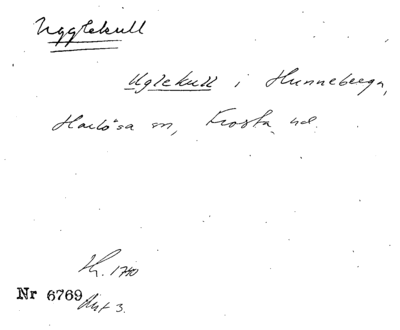 Ugglekull
Uglekull i Hunneberga,
Harlösa sn, Frosta hd.
Nr 6769